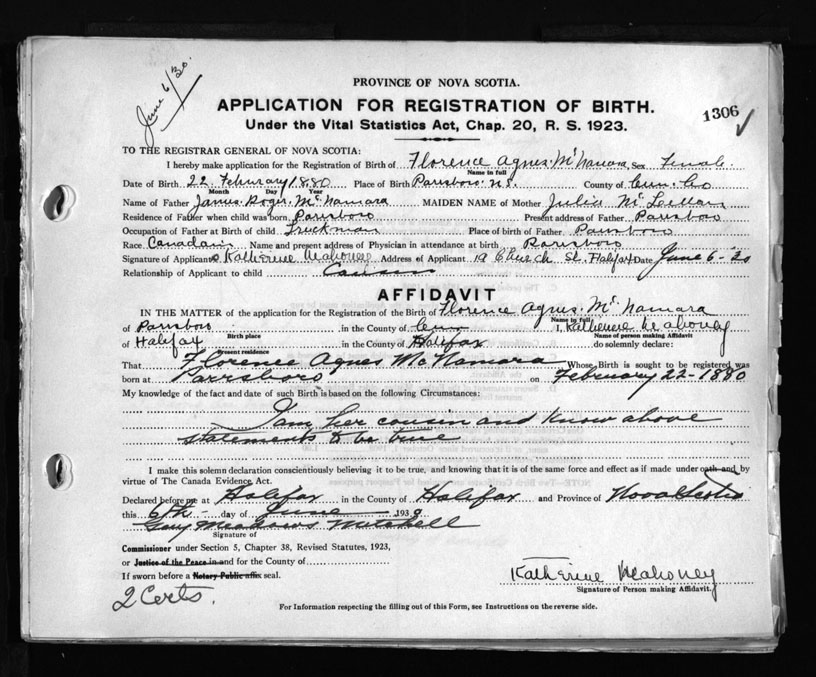 June 6/30.
PROVINCE OF NOVA SCOTIA.
APPLICATION FOR REGISTRATION OF BIRTH.
1306 ✓
Under the Vital Statistics Act, Chap. 20, R. S. 1923.
TO THE REGISTRAR GENERAL OF NOVA SCOTIA:
I hereby make application for the Registration of Birth of Florence Agnes McNamara, Sex Female.
Name in full
Date of Birth 22 February 1880 Place of Birth Parrsboro N.S. County of Cum. Co
Month Day Year
Name of Father James Roger McNamara MAIDEN NAME of Mother Julia McLellan
Residence of Father when child was born Parrsboro Present address of Father Parrsboro
Occupation of Father at Birth of child Truckman Place of birth of Father Parrsboro
Race Canadain Name and present address of Physician in attendance at birth Parrsboro
Signature of Applicant Katherine Mahoney Address of Applicant 19 Church St. Halifax Date June 6-30
Relationship of Applicant to child Causin
AFFIDAVIT
IN THE MATTER of the application for the Registration of the Birth of Florence Agnes McNamara
Name in full
of Parrsboro in the County of Cum I, Katherine Mahoney
Birth place Name of person making Affidavit
of Halifax in the County of Halifax do solemnly declare:
Present residence
That Florence Agnes McNamara Whose Birth is sought to be registered was
born at Parrsboro on February 22-1880
My knowledge of the fact and date of such Birth is based on the following Circumstances:
I am her cousin and know above
statements to be true
I make this solemn declaration conscientiously believing it to be true, and knowing that it is of the same force and effect as if made under oath and by
virtue of The Canada Evidence Act.
Declared before me at Halifax in the County of Halifax and Province of Nova Scotia
this 6th day of June 1930
Mitchell
Signature of
Commissioner under Section 5, Chapter 38, Revised Statutes, 1923,
or Justice of the Peace in and for the County of
If sworn before a Notary Public affix seal.
Katherine Mahoney
Signature of Person making Affidavit.
2 Certs.
For Information respecting the filling out of this Form, see Instructions on the reverse side.